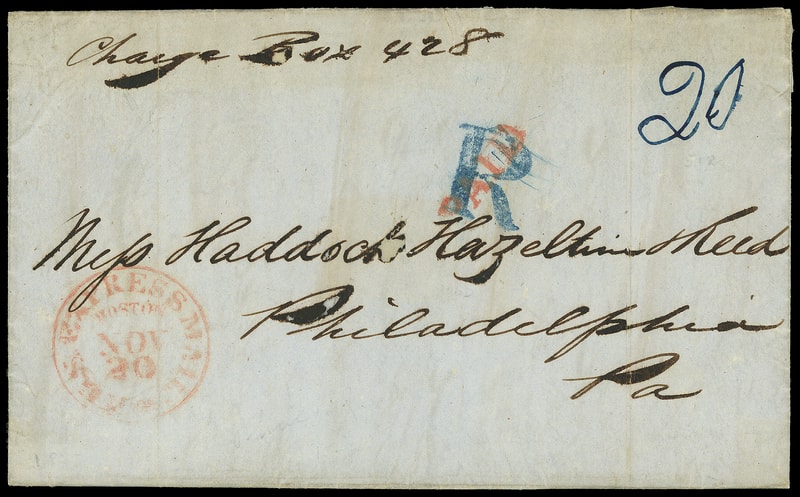 Charge Box 428
20
R
PAID
Mess Haddock Hazeltine & Reed
Philadelphia
Pa
EXPRESS MAIL
BOSTON
NOV
20